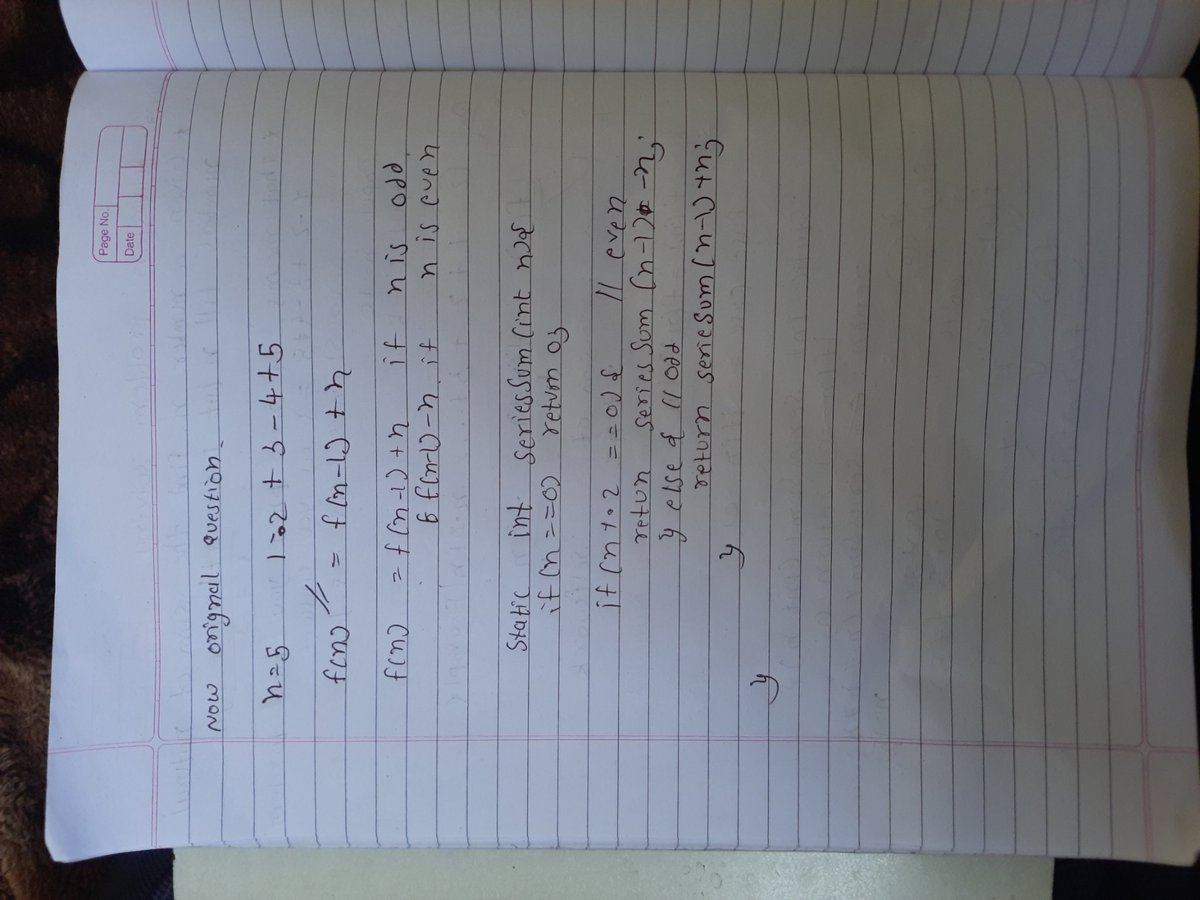 Page No.
Date
Now orignal question
n=5 1-2+3-4+5
f(n) = f(n-1) + n
f(n) = f(n-1)+n if n is odd
f(n-1)-n if n is even
Static int seriesSum(int n){
if(n==0) return 0;
if(n%2==0){ // even
retun seriesSum(n-1) -n;
} else { // odd
return serieSum(n-1)+n;
}
}